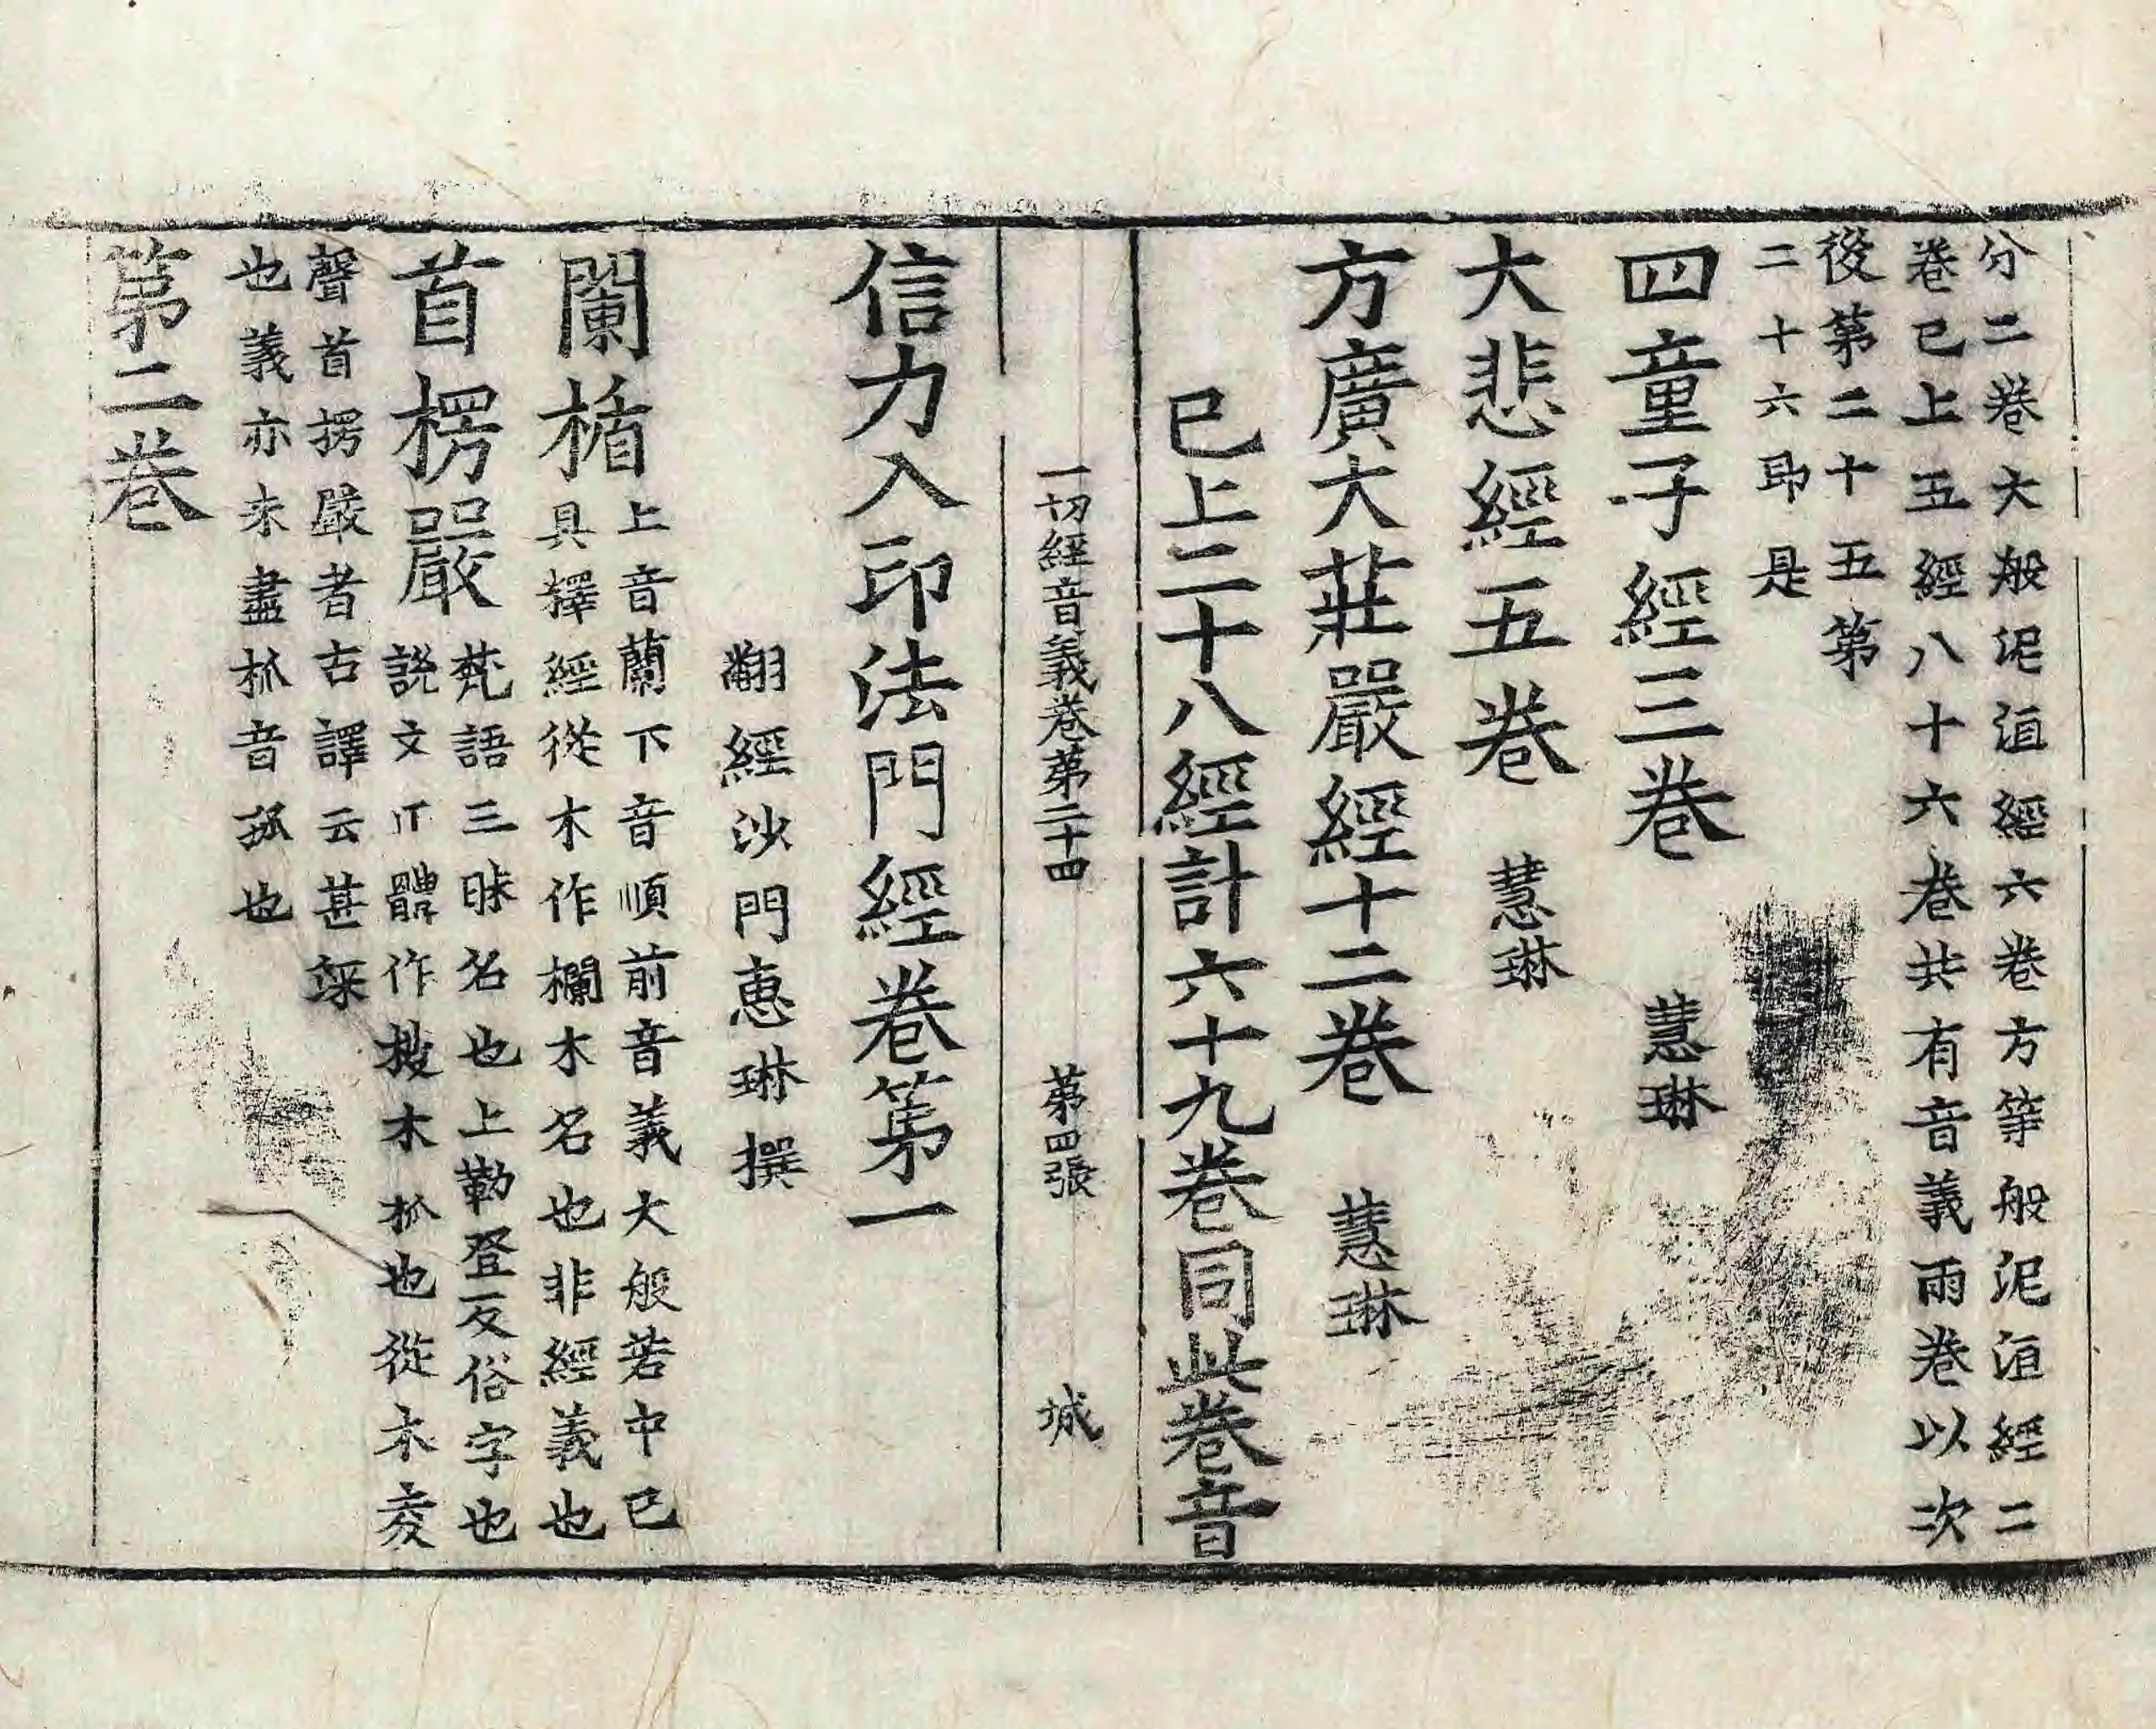 分二卷大般泥洹經六卷方等般泥洹經二
卷已上五經八十六卷共有音義兩卷以次
後第二十五第
二十六即是
四童子經三卷 慧琳
大悲經五卷 慧琳
方廣大莊嚴經十二卷 慧琳
已上二十八經計六十九卷同此卷音
一切經音義卷第二十四 第四張 城
信力入印法門經卷第一
翻經沙門惠琳撰
闌楯 上音蘭下音順前音義大般若中已
具擇經從木作欄木名也非經義也
首楞嚴 梵語三昧名也上勒登反俗字也
說文正體作棱木柧也從木夌
聲首楞嚴者古譯云甚深
也義亦未盡柧音孤也
第二卷